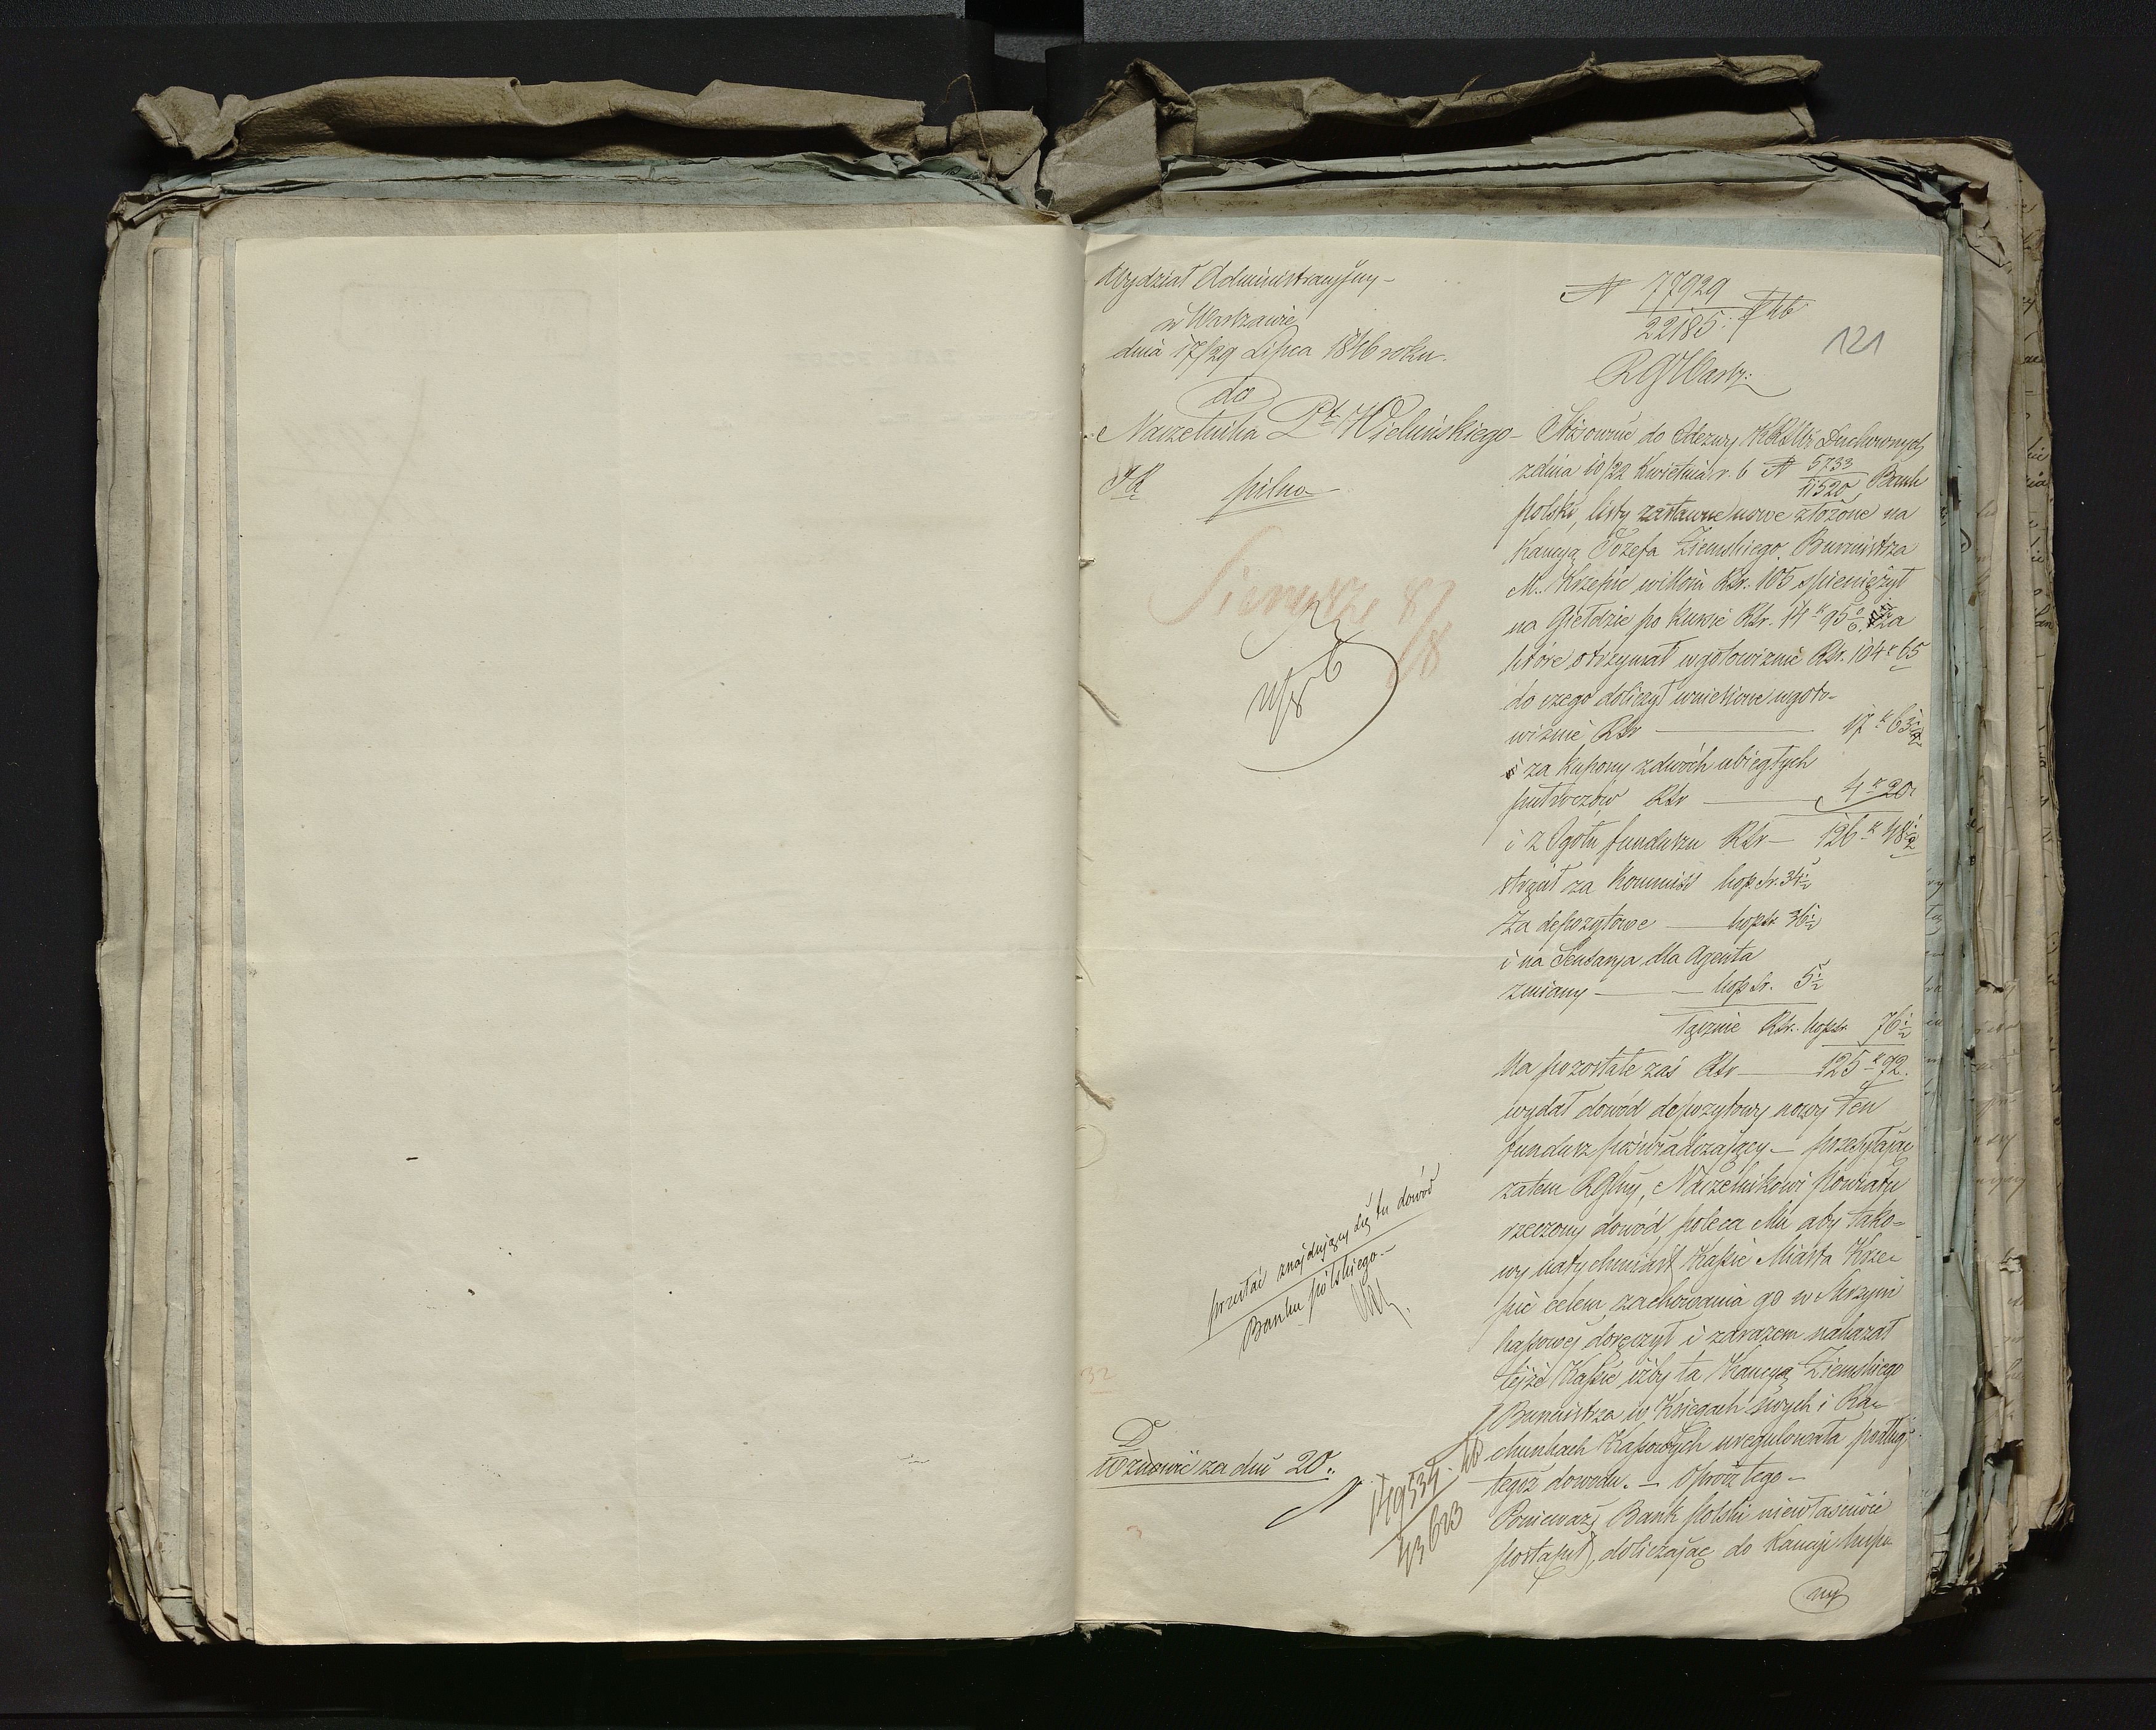 Wydział Administracyjny –
w Warszawie
dnia 17/29 Lipca 1846 roku.
do
Naczelnika Ptu Wieluńskiego –
pilno
N 77929
22185
121
RGWarsz:
Stósownie do Odezwy KRSW i Duchownych
z dnia 10/22 Kwietnia r. b N 5733
11520 Bank
polski, listy zastawne nowe złożone na
Kaucyą Józefa Ziemskiego Burmistrza
M. Krzepic w ilości Rsr. 105 spieniężył
na Giełdzie po kursie Rsr. 14 k 95 za
które otrzymał w gotowiznie Rsr. 104 k 65
do czego doliczył wniesione w goto-
wiznie Rsr 17 k 63½
i za kupony z dwóch ubiegłych
półroczów Rsr 4 k 20
i z Ogółu funduszu Rsr – 126 k 48½
strącił za Kommiss kop. sr. 34½
Za depozytowe kop sr 36½
i na Sensarya dla Agenta
zmiany kop sr. 5½
łącznie Rsr. kop sr 76½
Na pozostałe zaś Rsr 125 k 72.
wydał dowód depozytowy nowy ten
fundusz poświadczający – przesyłając
zatem RGlny, Naczelnikowi Powiatu
rzeczony dowód, poleca Mu aby tako-
wy natychmiast Kassie Miasta Krze-
pic celem zachowania go w Skrzyni
kassowej doręczył i zarazem nakazał
tejże Kassie iżby ta Kaucyą Ziemskiego
Burmistrza w Księgach swych i Ra-
chunkach Kassowych uregulowała podług
tegoż dowodu. – Oprócz tego –
Ponieważ Bank polski niewłaściwie
postąpił, doliczając do Kaucji kupo
ny
przesłać znajdujący się tu dowód
Banku polskiego. –
32
D
Wznowić za dni 20.
N